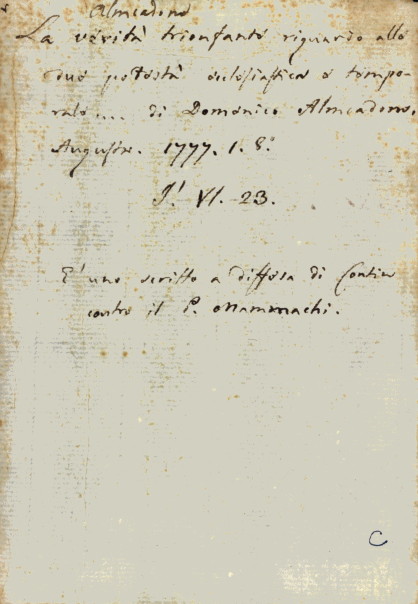 Almeadono
La verità trionfante riguardo alle
due potestà ecclesiastica e tempo-
rale ... di Domenico Almeadono.
Auguste. 1777. 1. 8.º
I! VI. 23.
E' uno scritto a diffesa di Contin
contro il P. Mammachi.
C